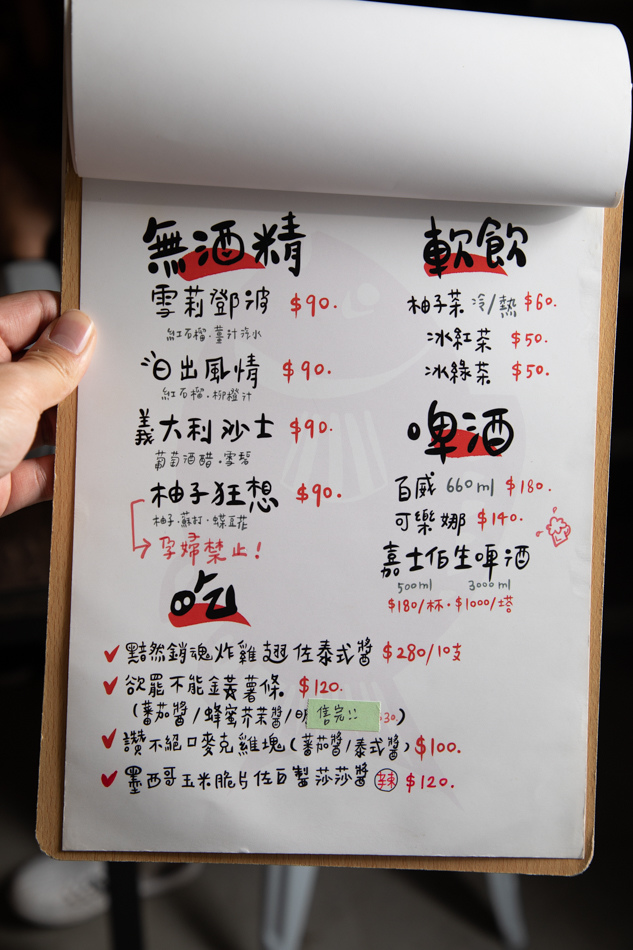 無酒精
雪莉鄧波 $90.
紅石榴.薑汁汽水
日出風情 $90.
紅石榴.柳橙汁
義大利沙士 $90.
葡萄酒醋.雪碧
柚子狂想 $90.
柚子.蘇打.蝶豆花
孕婦禁止!
軟飲
柚子茶 冷/熱 $60.
冰紅茶 $50.
冰綠茶 $50.
啤酒
百威 660ml $180.
可樂娜 $140.
嘉士伯生啤酒
500ml 3000ml
$180/杯.$1000/塔
吃
✓黯然銷魂炸雞翅佐泰式醬 $280/10支
✓欲罷不能鐵薯條。 $120.
(蕃茄醬/蜂蜜芥茉醬/明 售完!! 30.)
✓讚不絕口麥克雞塊(蕃茄醬/泰式醬) $100.
✓墨西哥玉米脆片佐自製莎莎醬 辣 $120.